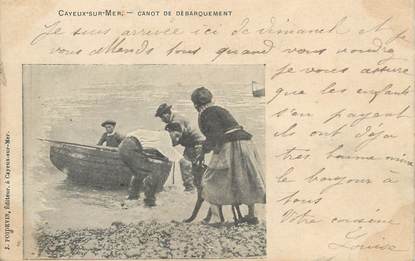 CAYEUX-SUR-MER. — CANOT DE DÉBARQUEMENT
Je suis arrivée ici de dimanche et je
vous attends tous quand vous voudrez
je vous assure
que les enfants
s'en payent
ils ont déjà
très bonne mine
le bonjour à
tous
Votre cousine
Louise
J. POIDEVIN, Éditeur, à Cayeux-sur-Mer.